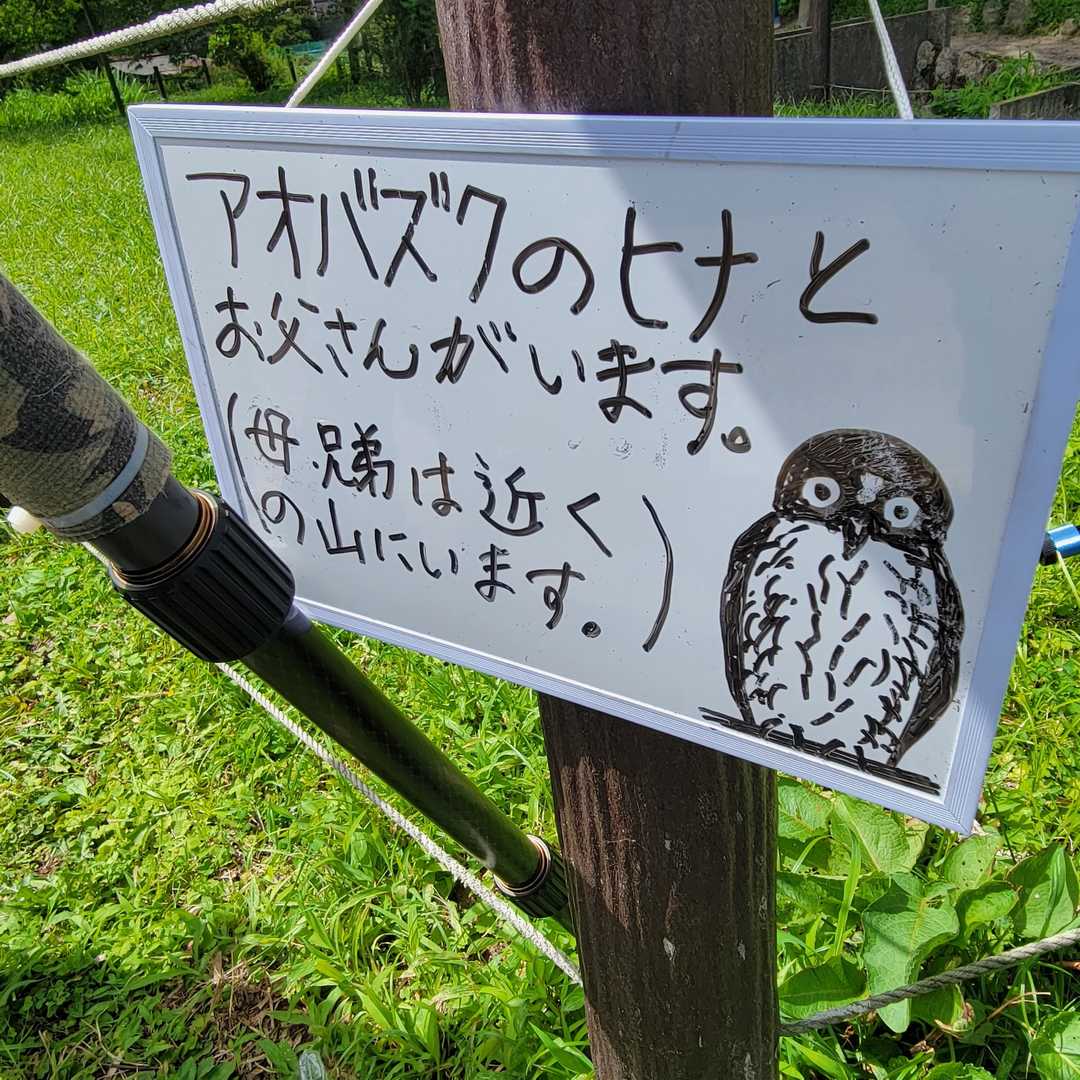 アオバズクのヒナと
お父さんがいます。
(母、兄弟は近く
の山にいます。)